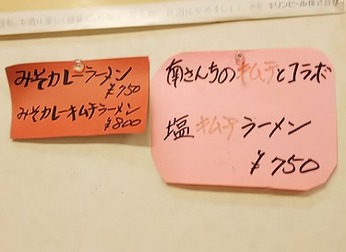 みそカレーラーメン
¥750
みそカレーキムチラーメン
¥800
南さんちのキムチとコラボ
塩キムチラーメン
¥750